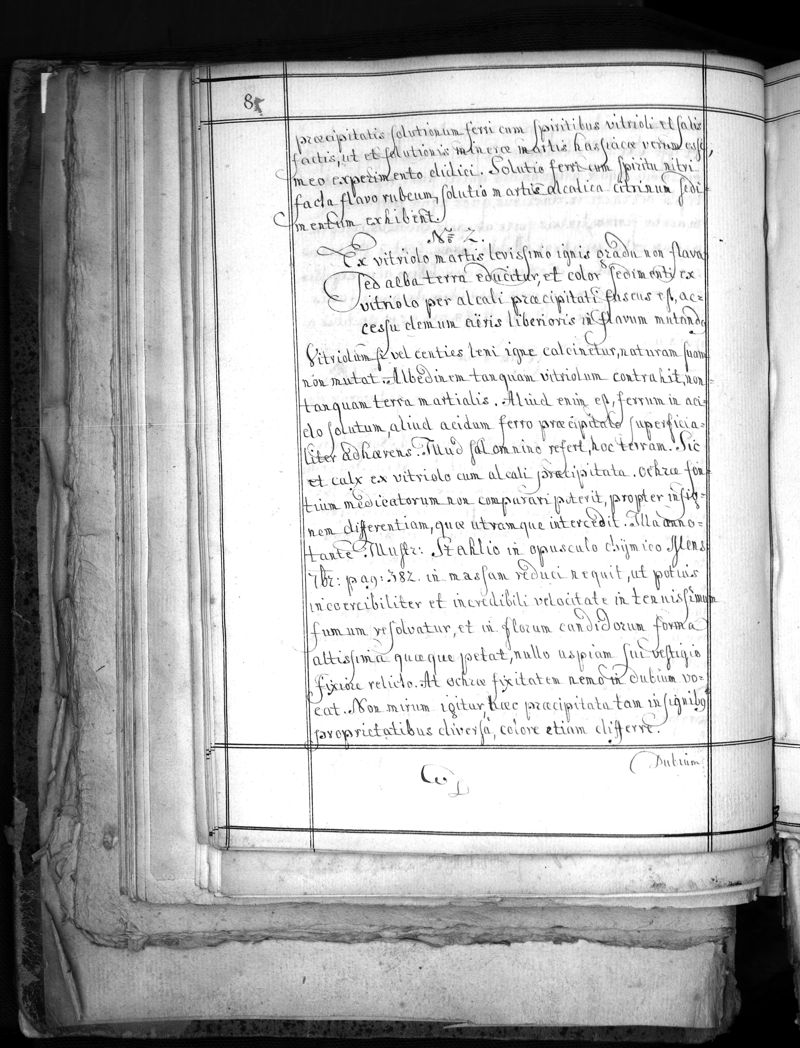 8
præcipitatis solutionum ferri cum spiritibus vitrioli et salis
factis, ut et solutionis mineræ martis hassiacæ verum esse,
meo experimento didici. Solutio ferri cum spiritu nitri
facta flavo rubeum, solutio martis alcalica citrinum sedi-
mentum exhibent.
No. 2.
Ex vitriolo martis levissimo ignis gradu non flava
sed alba terra educitur, et color sedimenti ex
vitriolo per alcali præcipitati fuscus est, ac=
cessu demum aëris liberioris in flavum mutando
Vitriolum si vel centies leni igne calcinetur, naturam suam
non mutat. Albedinem tanquam vitriolum contrahit, non
tanquam terra martialis. Aliud enim est, ferrum in aci-
do solutum, aliud acidum ferro præcipitato superficia=
liter adhærens. Illud sal omnino refert, hoc terram. Sic
et calx ex vitriolo cum alcali præcipitata. ochræ fon=
tium medicatorum non comparari poterit, propter insig=
nem differentiam, quæ utramque intercedit. Illa anno=
tante Illustr: Stahlio in opusculo chÿmico Mens
7br: pag: 382. in massam reduci nequit, ut potius
incoercibiliter et incredibili velocitate in tenuissimum
fumum resolvatur, et in florum candidorum forma
altissima quæque petat, nullo uspiam sui vestigio
fixiore relicto. At ochræ fixitatem nemo in dubium vo=
cat. Non mirum igitur, hæc præcipitata tam insignibus
proprietatibus diversa, colore etiam differre.
Dubium